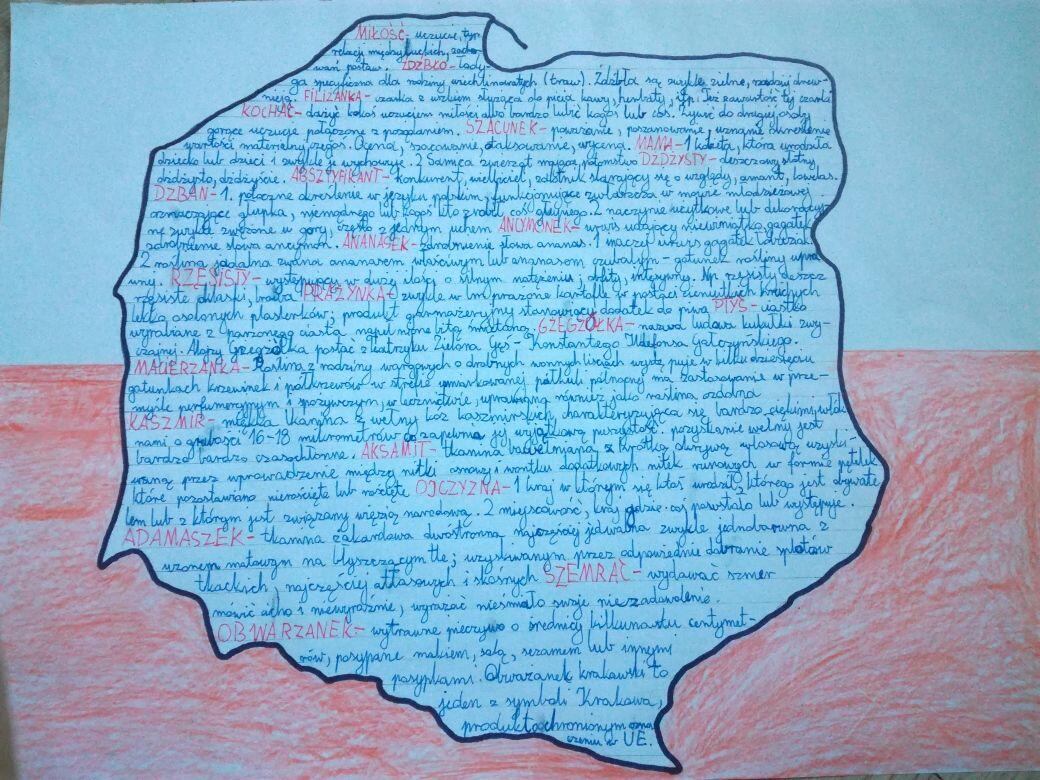 MIŁOŚĆ- uczucie, typ
relacji międzyludzkich, zacho-
wań postaw. ŹDŹBŁO- łody-
ga specyficzna dla rodziny wiechlinowatych (traw). Źdźbła są zwykle zielne, rzadziej drew-
nieją. FILIŻANKA- czarka z uszkiem służąca do picia kawy, herbaty, itp. Też zawartość tej czarki
KOCHAĆ- darzyć kogoś uczuciem miłości albo bardzo lubić kogoś lub coś. Żywić do drugiej osoby
gorące uczucie połączone z pożądaniem. SZACUNEK- poważanie, poszanowanie, uznanie określenie
wartości materialnej czegoś. Ocena, szacowanie, otaksowanie, wycena. MAMA- 1 kobieta, która urodziła
dziecko lub dzieci i zwykle je wychowuje. 2 Samica zwierząt mająca potomstwo DŻDŻYSTY- deszczowy, słotny,
dżdżysto, dżdżyście. ABSZTYFIKANT- konkurent, wielbiciel, zalotnik starający się o względy, amant, lowelas.
DZBAN- 1. potoczne określenie w języku polskim, funkcjonujące zwłaszcza w mowie młodzieżowej
oznaczające głupka, niemądrego lub kogoś kto zrobił coś głupiego. 2 naczynie użytkowe lub dekoracyj-
ne zwykle zwężone w górę, często z jednym uchem ANCYMONEK- urwis udający niewiniątko, gagatek
zdrobnienie słowa ancymon. ANANASEK- zdrobnienie słowa ananas. 1 inaczej urwis gagatek
2 roślina jadalna zwana ananasem właściwym lub ananasem czubatym- gatunek rośliny upra-
wny. RZĘSISTY- występujący w dużej ilości o silnym natężeniu, obfity, intensywny. Np. rzęsisty deszcz
rzęsiste oklaski, brawa PRAŻYNKA- zwykle w lm prażone kartofle w postaci cieniutkich kruchych
lekko osolonych plasterków; produkt garmażeryjny stanowiący dodatek do piwa PTYŚ- ciastko
wyrabiane z parzonego ciasta napełnione bitą śmietaną. GŻEGŻÓŁKA- nazwa ludowa kukułki zwy-
czajnej. Alojzy Gżegżółka postać z teatrzyku Zielona Gęś- Konstantego Ildefonsa Gałczyńskiego.
MACIERZANKA- Roślina z rodziny wargowych o drobnych wonnych liściach występuje w kilkudziesięciu
gatunkach krzewinek i półkrzewów w strefie umiarkowanej półkuli północnej ma zastosowanie w prze-
myśle perfumeryjnym i spożywczym, w lecznictwie, uprawiana również jako roślina ozdobna
KASZMIR- miękka tkanina z wełny kóz kaszmirskich charakteryzująca się bardzo cienkimi włók
nami o grubości 16-18 mikrometrów co zapewnia jej wyjątkową puszystość. pozyskanie wełny jest
bardzo bardzo czasochłonne. AKSAMIT- tkanina bawełniana z krótką okrywą włosową uzyski-
waną przez wprowadzenie między nitki osnowy i wątku dodatkowych nitek runowych w formie pętelek
które pozostawiono nierozcięte lub rozcięte OJCZYZNA- 1 kraj w którym się ktoś urodził, którego jest obywate
lem lub z którym jest związany więzią narodową. 2 miejscowość, kraj gdzie coś powstało lub występuje.
ADAMASZEK- tkanina żakardowa dwustronna najczęściej jedwabna zwykle jednobarwna z
wzorem matowym na błyszczącym tle; uzyskiwanym przez odpowiednie dobranie splotów
tkackich, najczęściej atłasowych i skośnych SZEMRAĆ- wydawać szmer
mówić cicho i niewyraźnie, wyrażać nieśmiało swoje niezadowolenie.
OBWARZANEK- wytrawne pieczywo o średnicy kilkunastu centymet-
rów, posypane makiem, solą, sezamem lub innymi
posypkami. Obważanek krakowski to
jeden z symboli Krakowa,
produkt o chronionym ozna-
czeniu w UE.